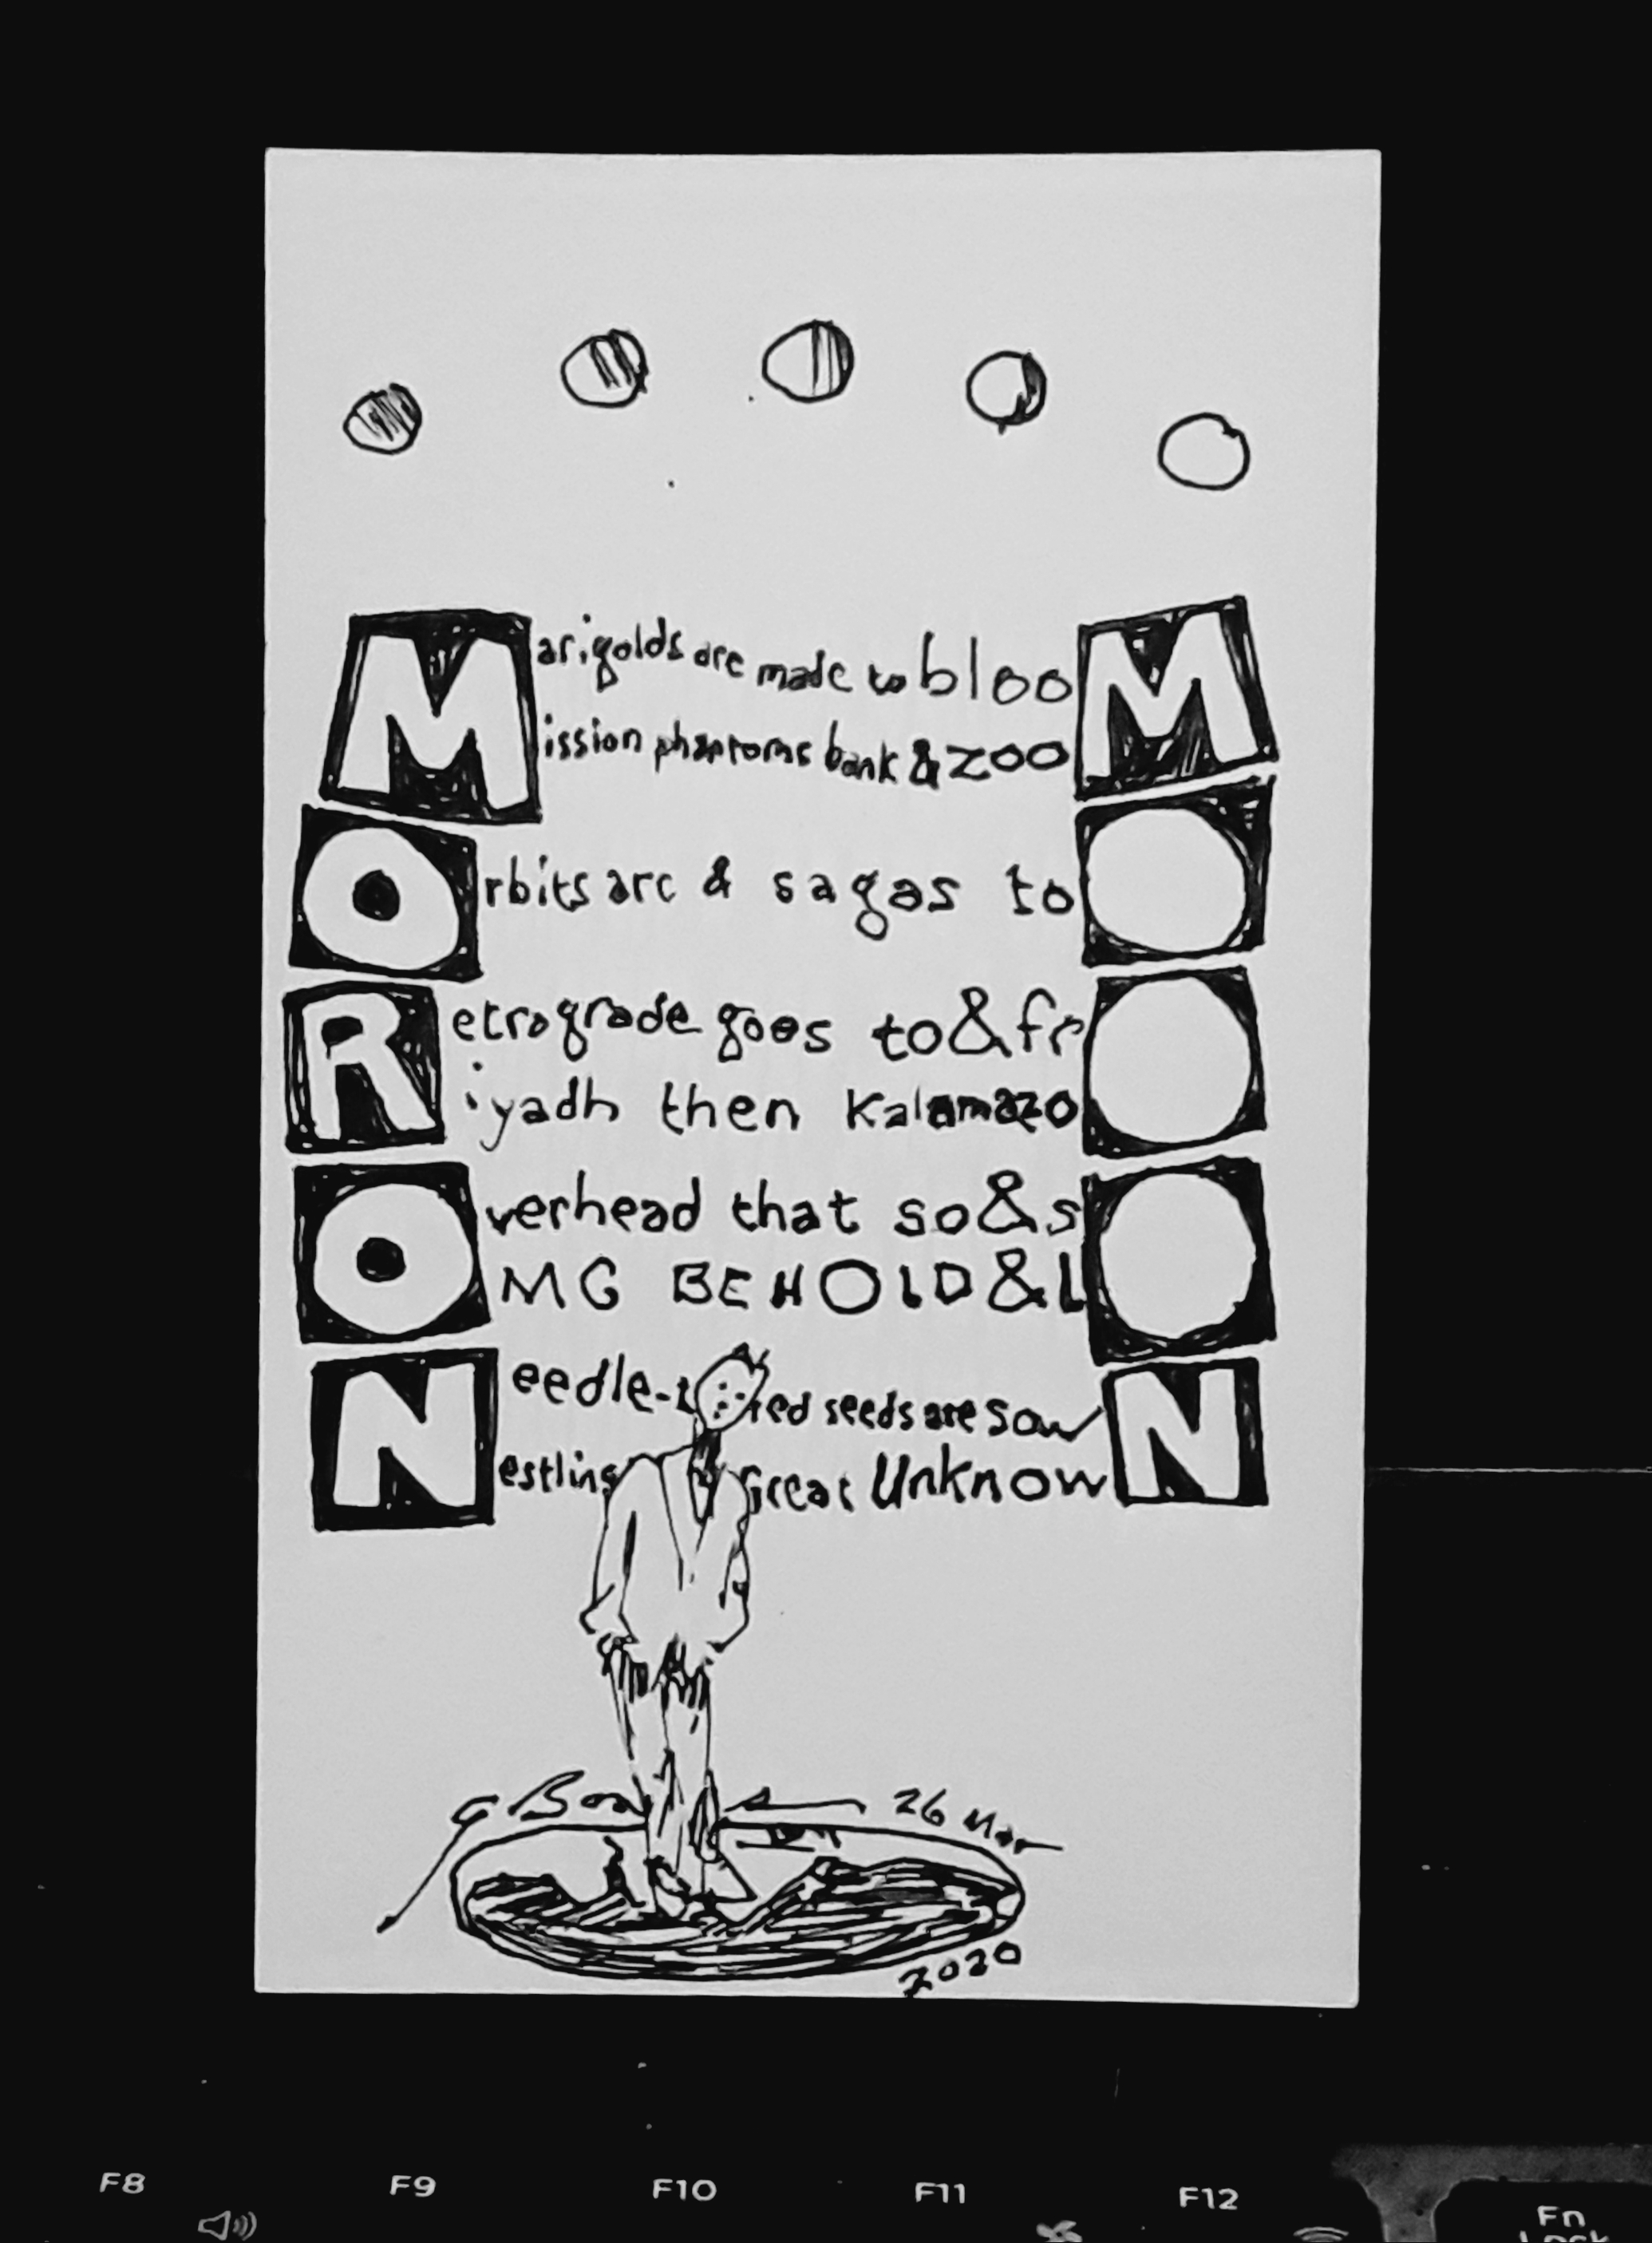 Marigolds are made to blooM
Mission phantoms bank & zooM
Orbits arc & sagas toO
Retrograde goes to & frO
Riyadh then KalamazoO
Overhead that so & sO
OMG BEHOLD & LO
Needle- seeds are sowN
Nestling Great UnknowN
26 Mar
2020
F8 F9 F10 F11 F12 Fn
Lock